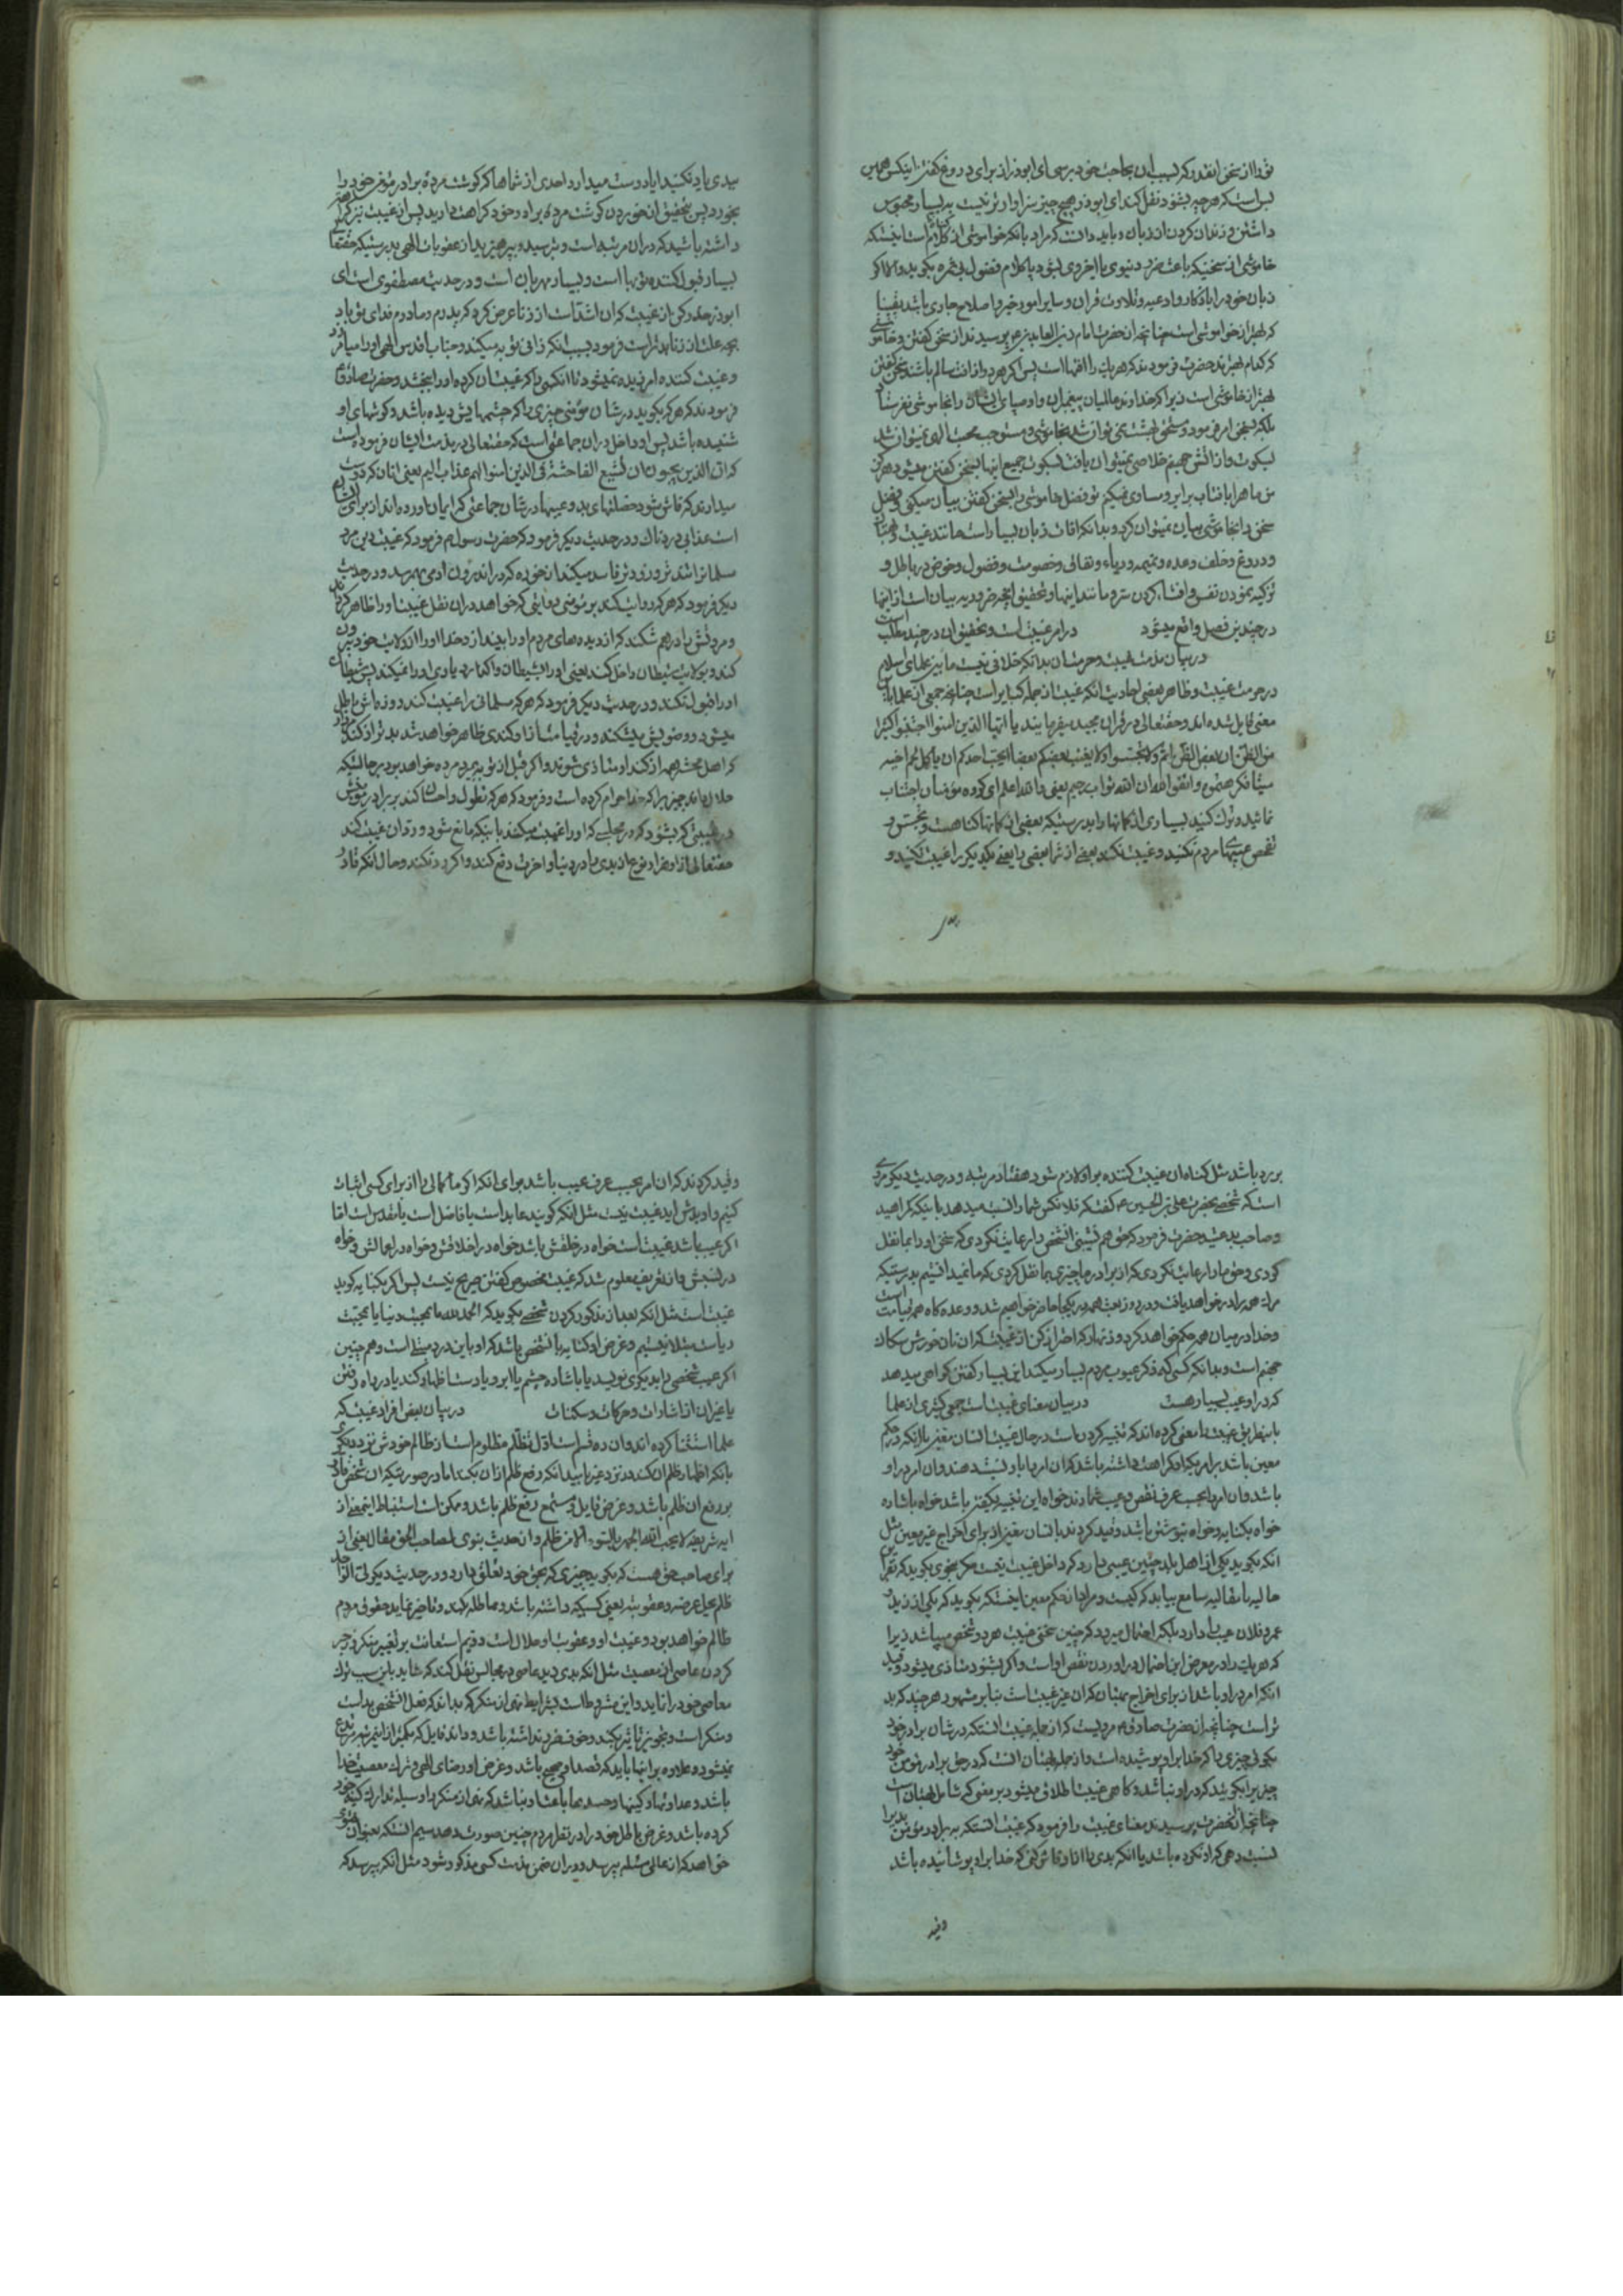 ترا از سخن انقدر که بسبب ان بحاجت خود برسی ای ابوذر از برای دروغ گفتن اینکس همین
بس است که هرچه بشنود نقل کند ای ابوذر هیچ چیز سزاوارتر نیست به بسیار محبوس
داشتن و زندان کردن از زبان و باید دانست که مراد بانکه خواموشی از کلام است اینستکه
خاموشی از سخنیکه باعث ضرر دنیوی یا اخروی بشود یا کلام فضول بی ثمره بگوید والا اگر
زبان خود را باذکار و ادعیه و تلاوت قران و سایر امور خیر و اصلاح جاری باشد یقینا
که بهتر از خواموشی است چنانچه از حضرت امام زین العابدین ع پرسیدند از سخن گفتن و خاموشی
که کدام بهترند حضرت فرمودند که هریک را افتها است پس اگر هر دو از افت سالم باشند سخن گفتن
بهتر از خاموشی است زیرا که خداوند عالمیان پیغمبران و اوصیای ایشان را بخاموشی نفرستاد
بلکه بسخن امر فرمود و مستحق بهشت نمی توان شد بخاموشی و مستوجب محبت الهی نمیتوان شد
بسکوت و از اتش جهنم خلاصی نمیتوان یافت بسکوت جمیع اینها بسخن گفتن میشود هرگز
من ماه را بافتاب برابر و مساوی نمیکنم تو فضل خاموشی را بسخن گفتن بیان میکنی و فضل
سخن را بخاموشی بیان نمیتوان کرد و بدانکه افات زبان بسیار است مانند غیبت و بهتان
و دروغ و خلف وعده و نمیمه و ریاء و نفاق و خصومت و فضول و خوض در باطل و
تزکیه نمودن نفس و افشاء کردن سر و مانند اینها و تحقیق انچه ضرور به بیان است از اینها
در چندین فصل واقع میشود در امر غیبت است و تحقیق ان در چند مطلب است
در بیان مذمت غیبت و حرمت ان بدانکه خلافی نیست مابین علمای اسلام
در حرمت غیبت و ظاهر بعضی احادیث انکه غیبت از جمله کبایر است چنانچه جمعی از علما باین
معنی قایل شده اند و حقتعالی در قران مجید میفرمایند یا ایها الذین امنوا اجتنبوا کثیرا
من الظن ان بعض الظن اثم ولا تجسسوا ولا یغتب بعضکم بعضا ایحب احدکم ان یاکل لحم اخیه
میتا فکرهتموه و اتقوا الله ان الله تواب رحیم یعنی والله اعلم ای گروه مؤمنان اجتناب
نمائید و ترک کنید بسیاری از گمانها را بدرستیکه بعضی از گمانها گناهست و تجسس و
تفحص عیبهای مردم نکنید و غیبت نکند بعضی از شما بعضی را یعنی یکدیگر را غیبت نکنید و
بدی یاد نکنید ایا دوست میدارد احدی از شماها که گوشت مرده برادر مؤمن خود را
بخورد پس بتحقیق از خوردن گوشت مرده برادر خود کراهت دارید پس از غیبت نیز کراهت
داشته باشید که دران مرتبه است و بترسید و بپرهیزید از عقوبات الهی بدرستیکه حقتعالی
بسیار قبول کننده توبها است و بسیار مهربان است و در حدیث مصطفوی است ای
ابوذر حذر کن از غیبت که ان اشد است از زنا عرض کرد که پدرم و مادرم فدای تو باد
بچه علت از زنا بدتر است فرمود بسبب انکه زانی توبه میکند و جناب اقدس الهی او را میامرزد
و غیبت کننده امرزیده نمیشود تا انکسی را که غیبت ان کرده او را ببخشد و حضرت صادق ع
فرمودند که هر که بگوید در شان مؤمنی چیزی را که چشمهایش دیده باشد و گوشهای او
شنیده باشد پس او داخل دران جماعتی است که حقتعالی در مذمت ایشان فرموده است
که ان الذین یحبون ان تشیع الفاحشة فی الذین امنوا لهم عذاب الیم یعنی انان که دوست
میدارند که فاش شود خصلتهای بد و عیبها در شان جماعتی که ایمان اورده اند از برای ایشان
است عذابی دردناک و در حدیث دیگر فرمود که حضرت رسول ص فرمود که غیبت دین مرد
مسلمانرا تندتر و زودتر فاسد میکند از خوره که در اندرون ادمی بهم رسد و در حدیث
دیگر فرمود که هر که روایت کند بر مؤمنی روایتی که خواهد دران نقل عیبت او را ظاهر گرداند
و مروتش را درهم شکند که از دیده های مردم او را بیندازد خدا او را از ولایت خود بیرون
کند و بولایت شیطان داخل کند یعنی او را بشیطان واگذارد و یاری او را نمیکند پس شیطان
او را قبول نکند و در حدیث دیگر فرمود که هر که مسلمانی را غیبت کند روزه اش باطل
میشود و وضویش میشکند و در قیامت از او گندی ظاهر خواهد شد بدتر از گند مردار
که اهل محشر همه از گند او متاذی شوند و اگر قبل از توبه بمیرد مرده خواهد بود بر حالتیکه
حلال داند چیزیرا که خدا حرام کرده است و فرمود که هر که تطول و احسان کند بر برادر مؤمنش
در غیبتی که بشنود که در مجلسی که او را غیبت میکنند باینکه مانع شود و رد ان غیبت کند
حقتعالی از او هزار نوع از بدی را در دنیا و اخرت دفع کند و اگر رد نکند و حال انکه قادر
بر رد باشد مثل گناه ان غیبت کننده بر او لازم شود هفتاد مرتبه و در حدیث دیگر مروی
است که شخصی بحضرت علی بن الحسین ع گفت که فلانکس شما را نسبت میدهد باینکه گمراهید
و صاحب بدعتید حضرت فرمود که حق همنشینی انشخص را رعایت نکردی که سخن او را بما نقل
کردی و حق ما را رعایت نکردی که از برادر ما چیزی بما نقل کردی که ما نمیدانستیم بدرستیکه
مرگ همه را در خواهد یافت و در روز بعث همه در یکجا حاضر خواهیم شد و وعده گاه همه قیامت است
و خدا در میان همه حکم خواهد کرد و زنهار که احتراز کن از غیبت که ان نان خورش سگان
جهنم است و بدانکه کسی که ذکر عیوب مردم بسیار میکند این بسیار گفتن گواهی میدهد
که در او عیب بسیار هست در بیان معنای غیبت است جمع کثیری از علما
باینطریق غیبت را معنی کرده اند که تنبیه کردن است در حال غیبت انسان معین یا انکه در حکم
معین باشد بر امریکه او کراهت داشته باشد که ان امر را باو نسبت دهند و ان امر در او
باشد و ان امر را بحسب عرف نقص و عیب شمارند خواه این تنبیه بگفتن باشد خواه باشاره
خواه بکنایه و خواه بنوشتن باشد و قید کردند بانسان معین از برای اخراج غیر معین مثل
انکه بگوید یکی از اهل بلد چنین عیبی دارد که داخل غیبت نیست مگر بنحوی بگوید که بقراین
حالیه یا مقالیه سامع بیابد که کیست و مراد از حکم معین اینستکه بگوید که یکی از زید و
عمرو فلان عیب را دارد بلکه احتمال میرود که چنین سخنی غیبت هر دو شخص میباشد زیرا
که هریک را در معرض این احتمال دراوردن نقص او است و اگر بشنود متاذی میشود و قید
انکه امر در او باشد از برای اخراج بهتان که ان غیر غیبت است بنابر مشهور هر چند که بد
تر است چنانچه از حضرت صادق ع مرویست که از جمله غیبت انستکه در شان برادر خود
بگوئی چیزی را که خدا بر او پوشیده است و از جمله بهتان انست که در حق برادر مؤمن خود
چیزیرا بگوئید که در او نباشد و گاهی غیبت اطلاق میشود بر معنی که شامل بهتان است
چنانچه از انحضرت پرسیدند معنای غیبت را فرمود که غیبت انستکه به برادر مؤمن بدیرا
نسبت دهی که او نکرده باشد یا انکه بدی را از او فاش کنی که خدا بر او پوشانیده باشد
و قید
و قید کردند که ان امر بحسب عرف عیب باشد برای انکه اگر ما کمالی را از برای کسی اثبات
کنیم و او بدش اید غیبت نیست مثل انکه گویند عابد است یا فاضل است یا مقدس است اما
اگر عیب باشد غیبت است خواه در خلقتش باشد خواه در اخلاقش و خواه در اعمالش و خواه
در نسبش و از تعریف معلوم شد که غیبت مخصوص گفتن صریح نیست پس اگر بکنایه گوید
غیبت است مثل انکه بعد از مذکور کردن شخصی بگوید که الحمد لله ما بمحبت دنیا یا بمحبت
ریاست مبتلا نیستیم و غرض او کنایه بانشخص باشد که او باین درد مبتلی است و همچنین
اگر عیب شخصی را بدیگری نویسد یا باشاره چشم یا ابرو یا دست اظهار کند یا در راه رفتن
یا غیر ان از اشارات و حرکات و سکنات در بیان بعضی افراد غیبت که
علما استثنا کرده اند و ان ده قسم است اول تظلم مظلوم است از ظالم خودش نزد دیگری
بانکه اظهار ظلم ان کند و نزد غیر بامید انکه رفع ظلم از ان بکند اما در صورتیکه ان شخص قادر
بر رفع ان ظلم باشد و غرض قایل و مستمع رفع ظلم باشد و ممکن است استنباط اینمعنی از
ایه شریفه لا یحب الله الجهر بالسوء الا من ظلم و از حدیث نبوی لصاحب الحق مقال یعنی از
برای صاحب حق هست که بگوید چیزی که بحق خود تعلق دارد و در حدیث دیگر لی الواجد
ظلم یحل عرضه و عقوبته یعنی کسیکه داشته باشد و مماطله کند و تاخیر نماید حقوق مردم
ظالم خواهد بود و غیبت او و عقوبت او حلال است دویم استعانت بر تغییر منکر و زجر
کردن عاصی از معصیت مثل انکه بدی زید عاصی در مجالس نقل کند که شاید باین سبب ترک
معاصی خود را نماید و این مشروط است بشرایط نهی از منکر که بداند که فعل انشخص بد است
و منکر است و تجویز تاثیر بکند و خوف ضرر نداشته باشد و داند فایل که بکمتر از اینمرتبه مرتدع
نمیشود و علاوه بر اینها باید که قصد او صحیح باشد و غرض او رضای الهی و ترک معصیت خدا
باشد و عداوتها و کینها و حسدها باعث او نباشد که نهی از منکر را وسیله تدارک کینه خود
کرده باشد و غرض باطل خود را در نظر مردم چنین صورت دهد سیم انستکه بعنوان فتوی
خواهد که از عالمی مسئله بپرسد و دران ضمن مذمت کسی مذکور شود مثل انکه بپرسد که